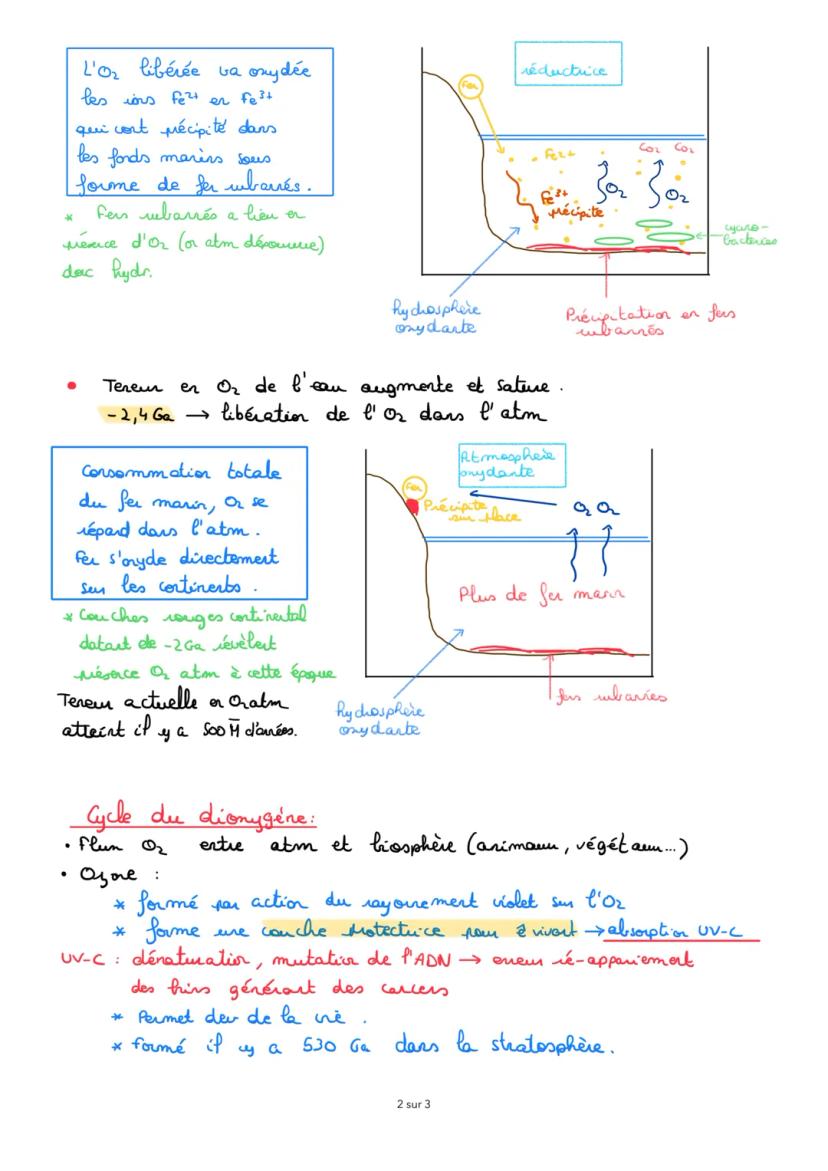 L'O₂ libérée va oxydée
les ions Fe²⁺ en Fe³⁺
qui vont précipité dans
les fonds marins sous
forme de fer rubannés.
* Fers rubannés a lieu en
présence d'O₂ (or atm dépourvue)
donc hydr.
réductrice
Fe²⁺
CO₂ CO₂
Fe³⁺
précipite
O₂
O₂
cyano-
bactéries
hydrosphère
oxydante
Précipitation en fers
rubannés
• Teneur en O₂ de l'eau augmente et sature.
-2,4 Ga → libération de l'O₂ dans l'atm
Consommation totale
du fer marin, O₂ se
répand dans l'atm.
Fer s'oxyde directement
sur les continents.
* Couches rouges continental
datant de -2Ga révèlent
présence O₂ atm à cette époque
Teneur actuelle en O₂ atm
atteint il y a 500 M d'années.
Atmosphère
oxydante
Précipite
sur place
O₂ O₂
Plus de fer marin
hydrosphère
oxydante
fers rubannés
Cycle du dioxygène:
• Flux O₂ entre atm et biosphère (animaux, végétaux...)
• Ozone :
* formé par action du rayonnement violet sur l'O₂
* forme une couche protectrice pour ê vivant → absorption UV-C
UV-C : dénaturation, mutation de l'ADN → erreur ré-appariement
des brins générant des cancers
* Permet dev de la vie.
* Formé il y a 530 Ga dans la stratosphère.
2 sur 3